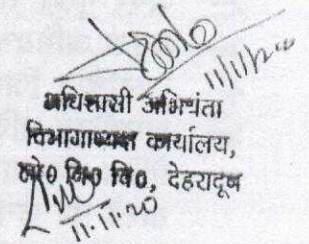 11/11/20
अधिशासी अभियंता
विभागाध्यक्ष कार्यालय,
लो० नि० वि०, देहरादून
11.11.20